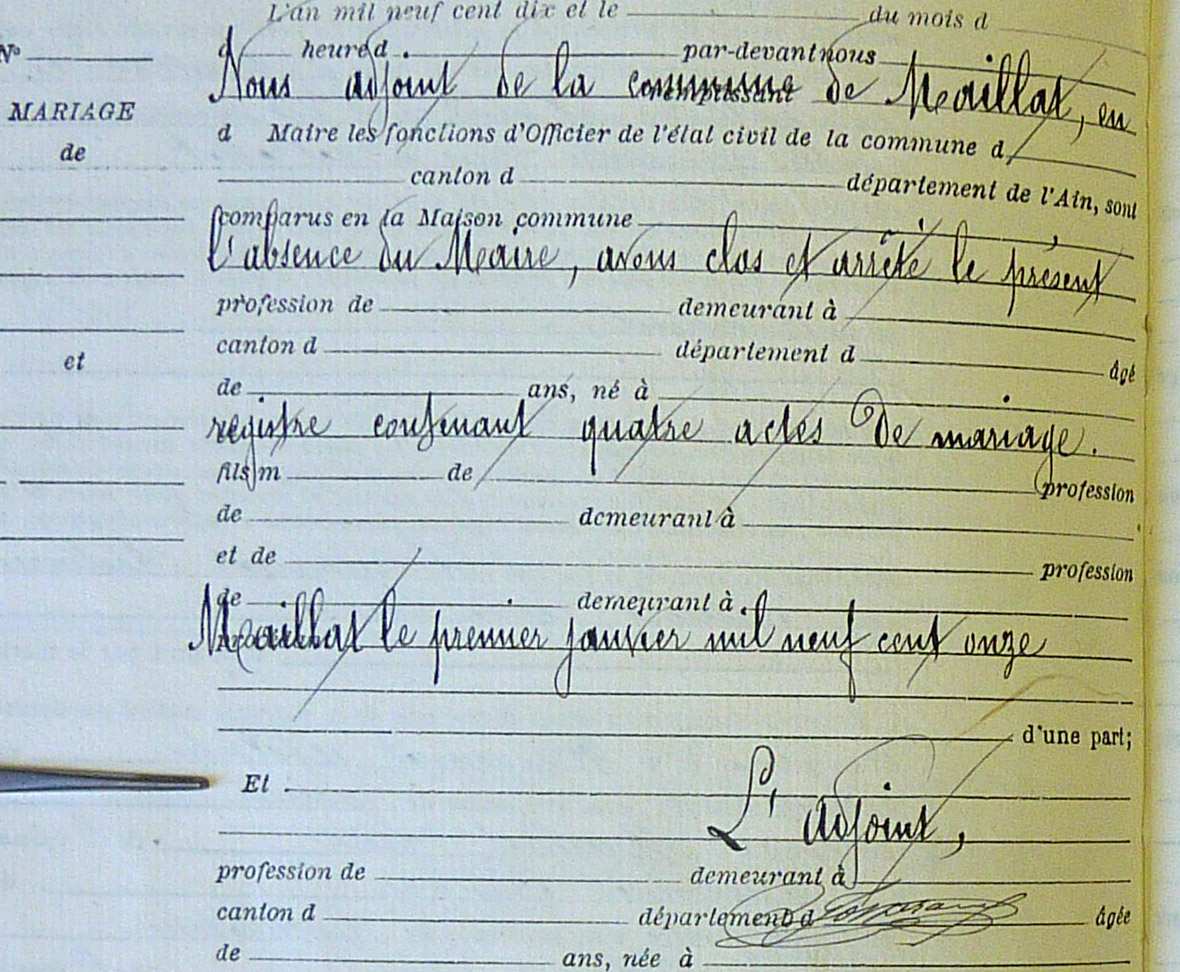 L'an mil neuf cent dix et le du mois d
N° d heure d par-devant nous
Nous adjoint de la commune de Maillat, en
remplissant
MARIAGE
d Maire les fonctions d'Officier de l'état civil de la commune d
de
canton d département de l'Ain, sont
comparus en la Maison commune
l'absence du Maire, avons clos et arrêté le présent
profession de demeurant à
canton d département d âgé
et
de ans, né à
registre contenant quatre actes de mariage.
fils m de profession
de demeurant à
et de profession
de demeurant à
Maillat le premier janvier mil neuf cent onze
d'une part;
Et
L'adjoint,
profession de demeurant à
canton d département d âgée
de ans, née à